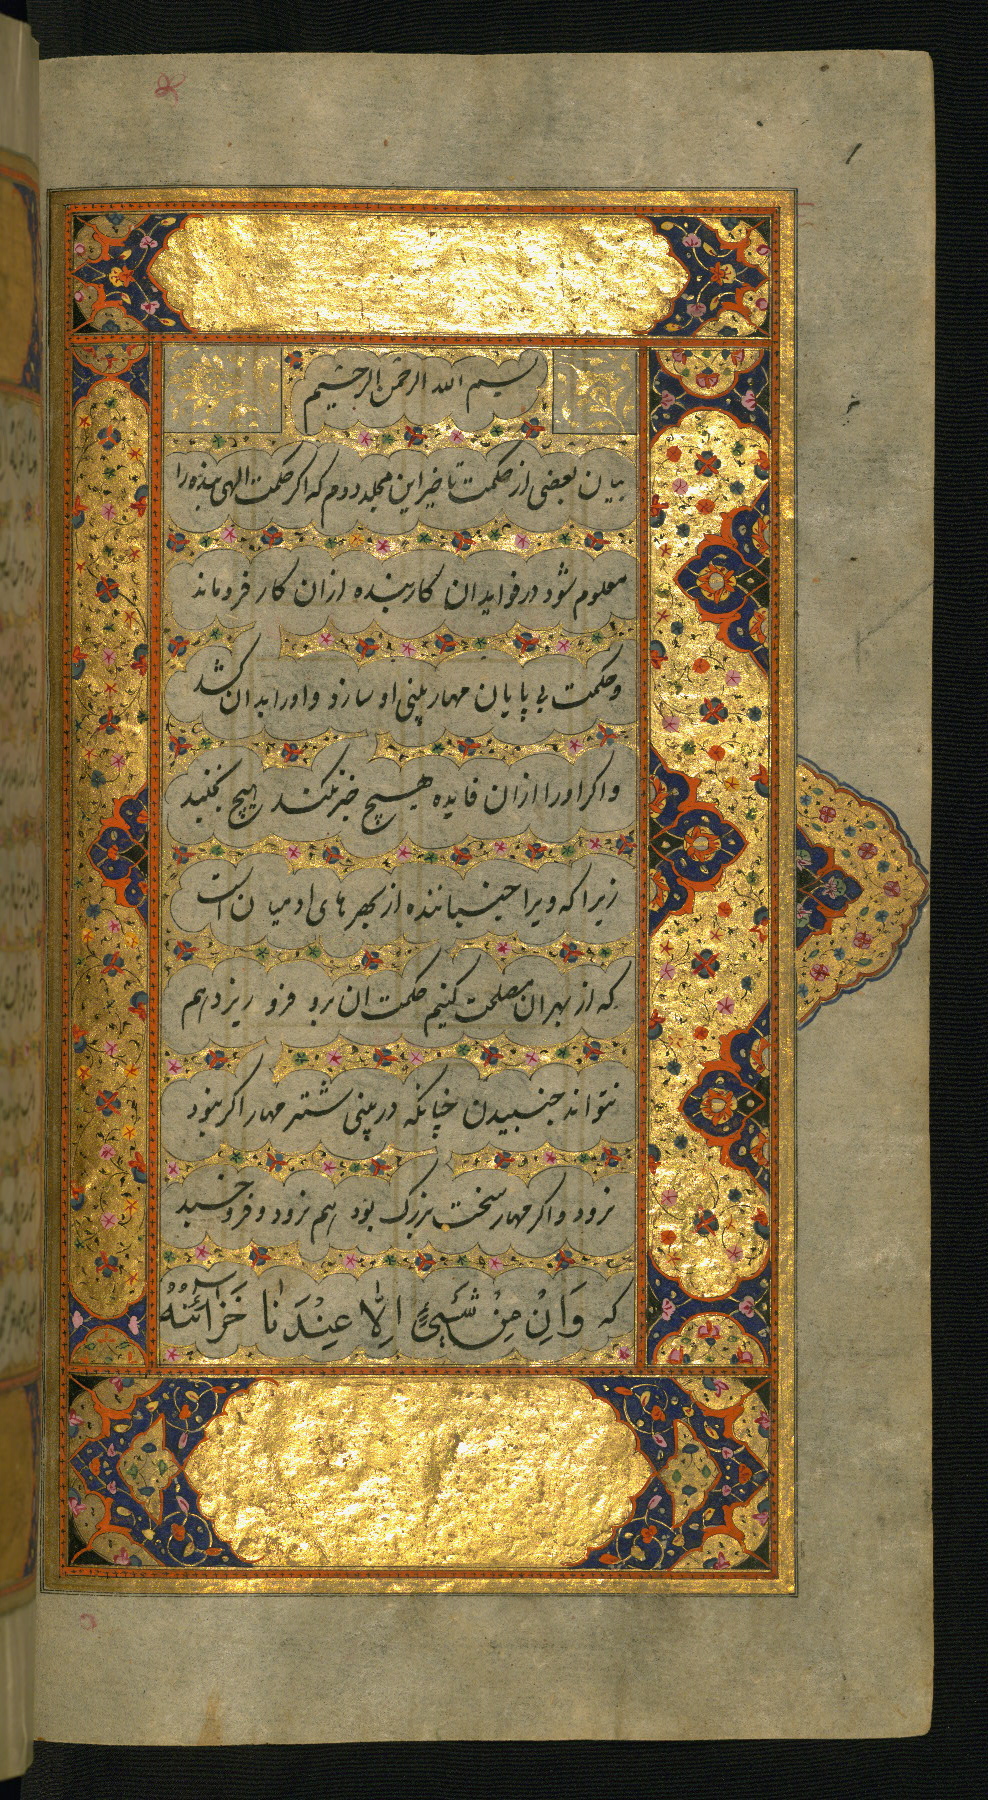 بسم الله الرحمن الرحیم
بیان بعضی از حکمت تاخیر این مجلد دوم که اگر حکمت الهی بنده را
معلوم شود در فواید ان کار بنده از ان کار فرو ماند
و حکمت بی پایان مهار بینی او سازد و او را بدان کشد
و اگر او را از ان فایده هیچ خبر نکند هیچ نجنبد
زیرا که ویرا جنباننده از بهر های ادمیان است
که از بهر ان مصلحت کنیم حکمت ان برو فرو ریزد هم
نتواند جنبیدن چنانکه در بینی شتر مهار اگر نبود
نرود و اگر مهار سخت بزرگ بود هم نرود و فرو خسبد
که وَاِنْ مِنْ شَیءٍ اِلّا عِنْدَنا خَزائِنُهُ